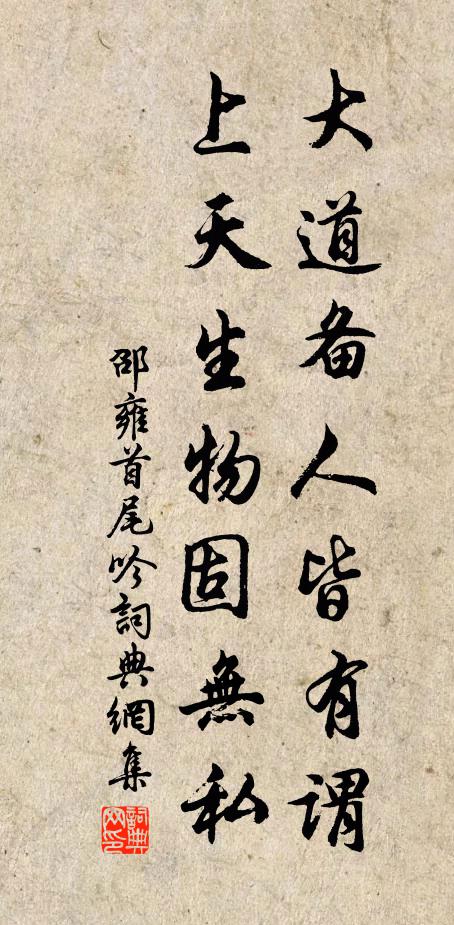 大道备人皆有谓
上天生物固無私
邵雍首尾吟詞典網集
詞典網印